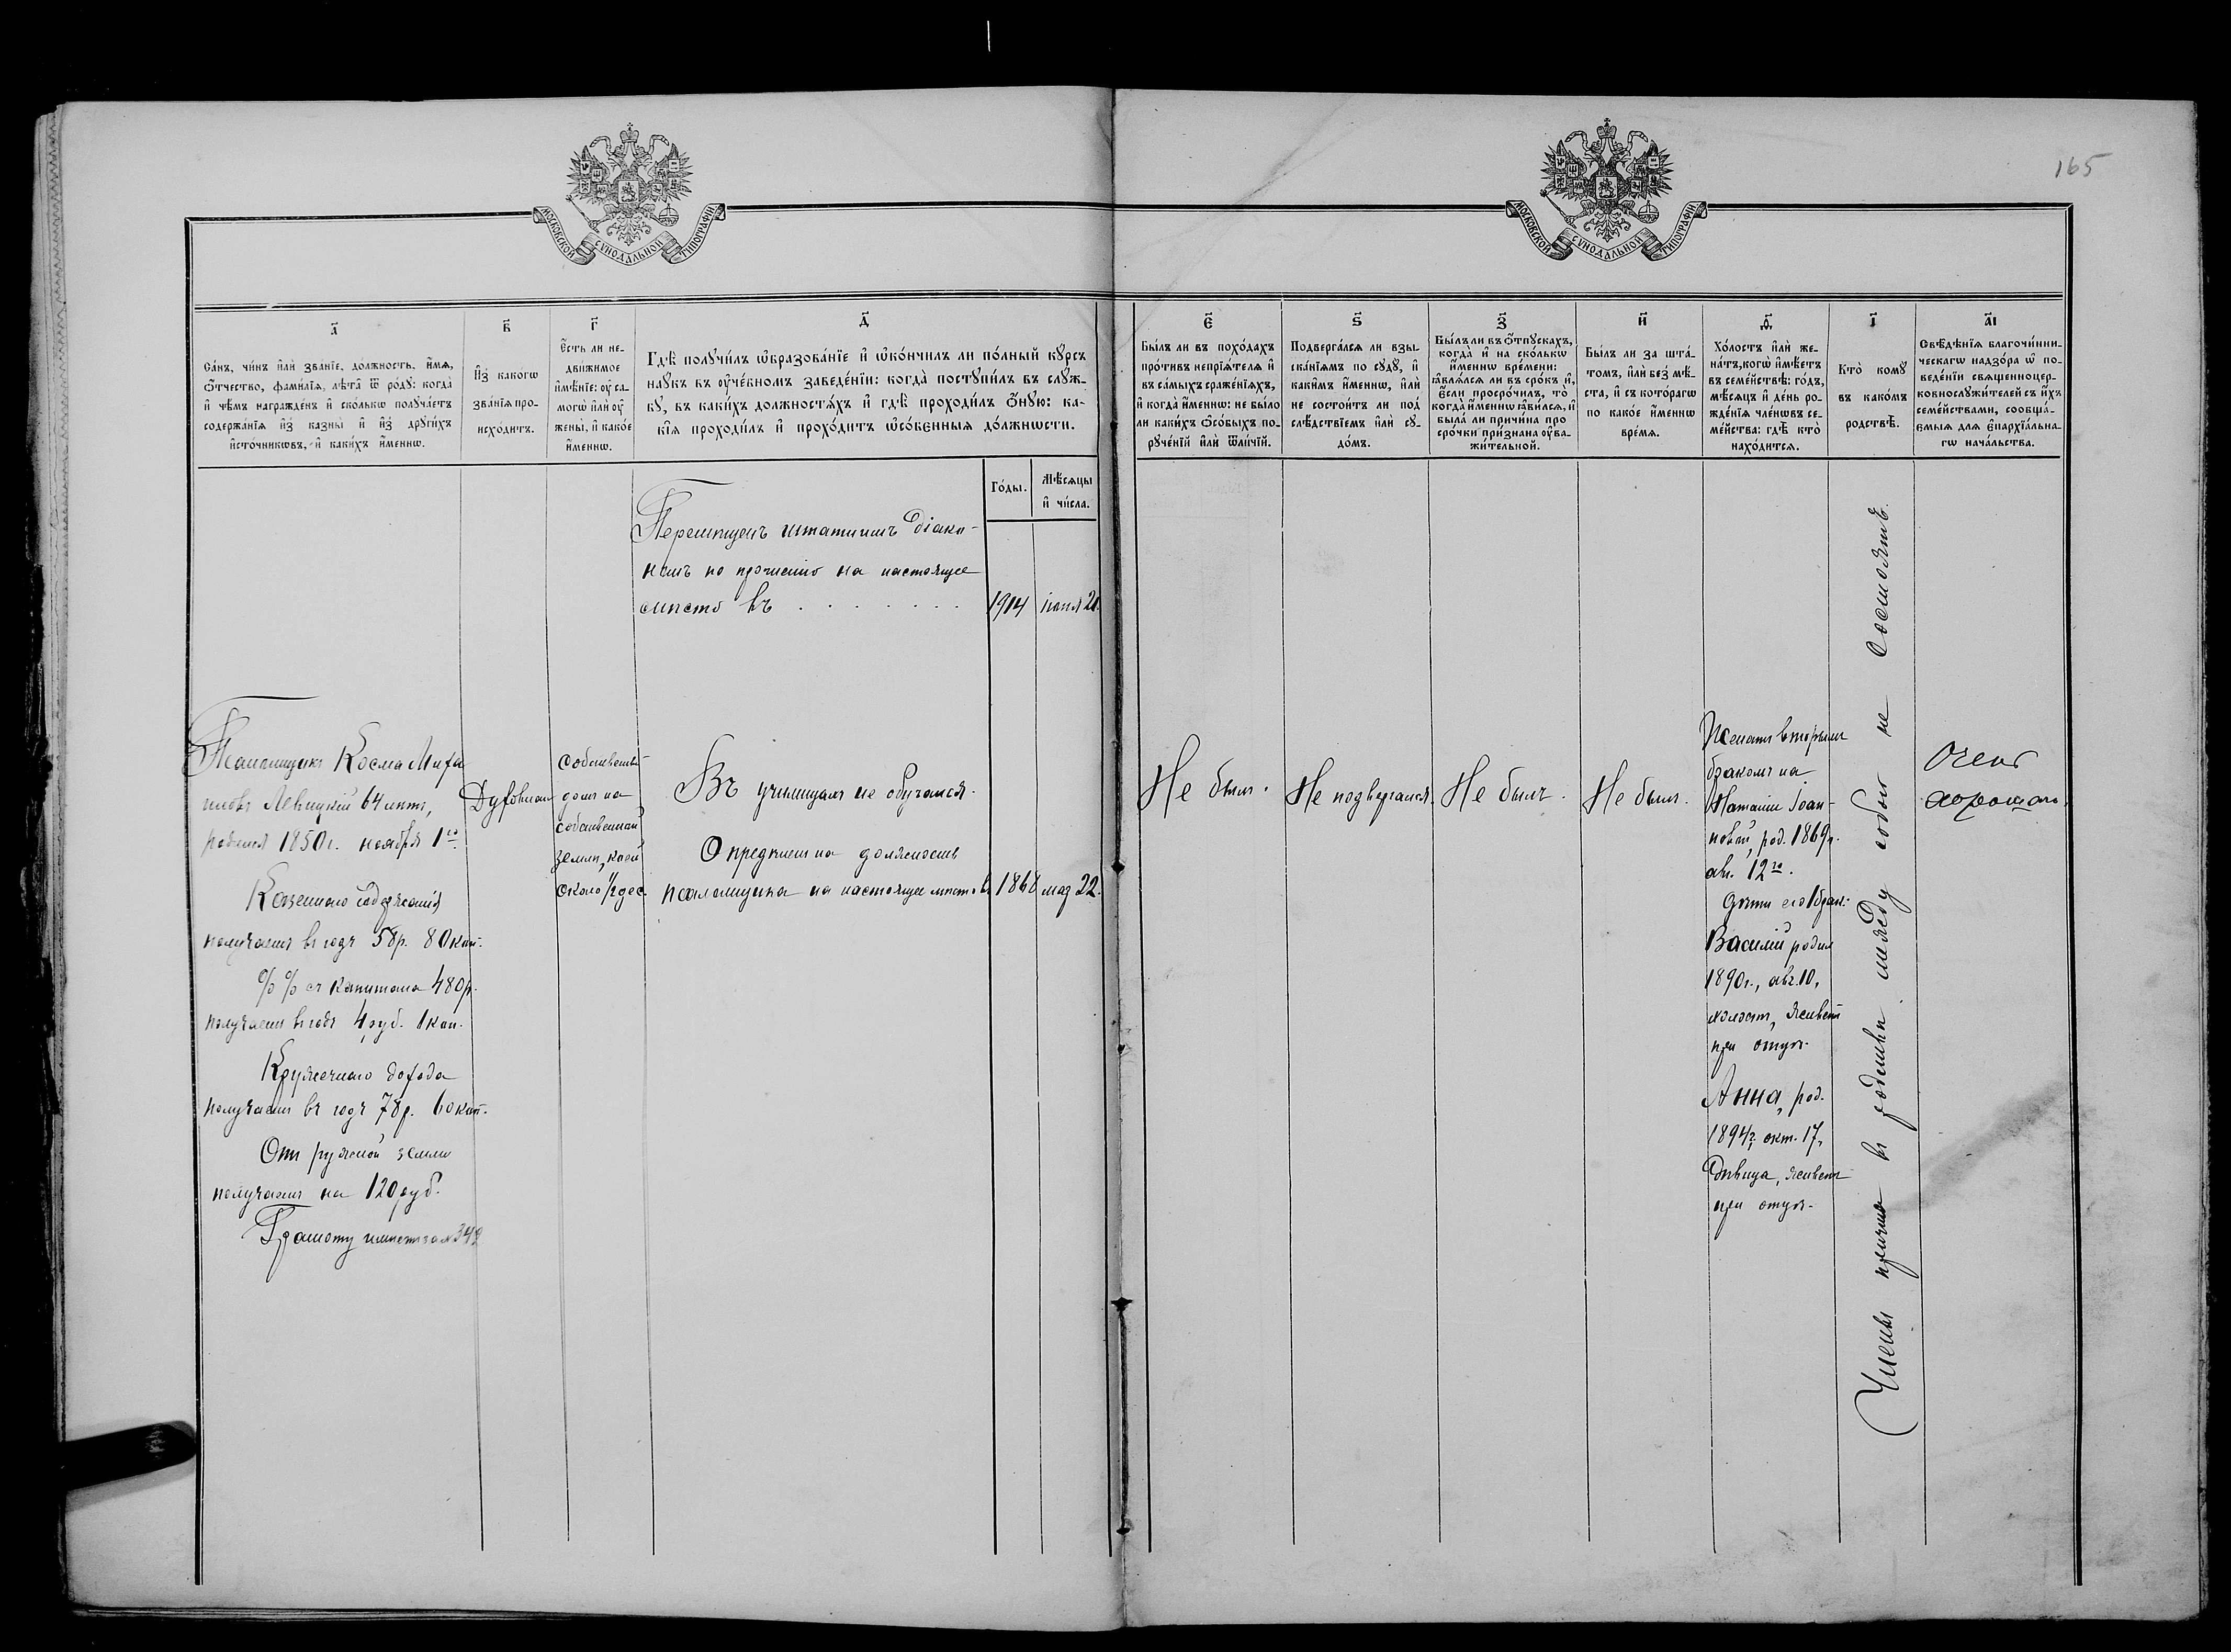 165
МОСКОВСКОЙ СѴНОДАЛЬНОЙ ТИПОГРАФІИ
МОСКОВСКОЙ СѴНОДАЛЬНОЙ ТИПОГРАФІИ
а҃
Са́нъ, чи́нъ и҆лѝ зва́нїе, до́лжность, и҆́мѧ,
ѻ҆́тчество, фами́лїѧ, лѣ́та ѿ ро́дꙋ: когда̀
и҆ чѣ́мъ награжде́нъ и҆ ско́лькѡ полꙋча́етъ
содержа́нїѧ и҆з̾ казны̀ и҆ и҆з̾ дрꙋги́хъ
и҆сто́чникѡвъ, и҆ каки́хъ и҆́меннѡ.
в҃
И҆з̾ како́гѡ
зва́нїѧ про-
исхо́дитъ.
г҃
Є҆́сть ли не-
дви́жимое
и҆мѣ́нїе: оу҆ са-
могѡ̀ и҆лѝ оу҆
жены̀, и҆ како́е
и҆́меннѡ.
д҃
Гдѣ̀ полꙋчи́лъ ѡ҆бразова́нїе и҆ ѡ҆ко́нчилъ ли по́лный кꙋ́рсъ
наꙋ́къ въ оу҆че́бномъ заведе́нїи: когда̀ постꙋпи́лъ въ слꙋ́ж-
бꙋ, въ каки́хъ должностѧ́хъ и҆ гдѣ̀ проходи́лъ ѻ҆́нꙋю: ка-
кі́ѧ проходи́лъ и҆ прохо́дитъ ѡ҆со́бенныѧ до́лжнѡсти.
Го́ды.
Мѣ́сѧцы
и҆ чи́сла.
є҃
Бы́лъ ли въ похо́дахъ
про́тивъ непрїѧ́телѧ и҆
въ са́мыхъ сраже́нїѧхъ,
и҆ когда̀ и҆́меннѡ: не бы́ло
ли каки́хъ ѻ҆со́быхъ по-
рꙋче́нїй и҆лѝ ѿли́чїй.
ѕ҃
Подверга́лсѧ ли взы-
ска́нїѧмъ по сꙋдꙋ̀, и҆
каки́мъ и҆́меннѡ, и҆лѝ
не состои́тъ ли под̾
слѣ́дствїемъ и҆лѝ сꙋ-
до́мъ.
з҃
Бы́лъ ли въ ѻ҆́тпꙋскахъ,
когда̀ и҆ на ско́лькѡ
и҆́меннѡ вре́мени:
ꙗ҆влѧ́лсѧ ли въ сро́къ и҆,
є҆́сли просро́чилъ, то̀
когда̀ и҆́меннѡ ꙗ҆ви́лсѧ, и҆
была́ ли причи́на про
сро́чки при́знана оу҆ва-
жи́тельной.
и҃
Бы́лъ ли за шта́-
томъ, и҆лѝ без̾ мѣ́-
ста, и҆ съ кото́рагѡ
по како́е и҆́меннѡ
вре́мѧ.
ѳ҃
Хо́лостъ и҆лѝ же-
на́тъ, когѡ̀ и҆мѣ́етъ
въ семе́йствѣ: го́дъ,
мѣ́сѧцъ и҆ де́нь ро-
жде́нїѧ чле́нѡвъ се-
ме́йства: гдѣ̀ кто̀
нахо́дитсѧ.
і҃
Кто̀ комꙋ̀
въ како́мъ
родствѣ̀.
а҃і
Свѣ́дѣнїѧ благочи́нни-
ческагѡ надзо́ра ѡ҆ по-
веде́нїи свѧщенноцер-
ковнослꙋжи́телей съ и҆́хъ
семе́йствами, сообща́-
емыѧ длѧ є҆пархїа́льна-
гѡ нача́льства.
Перемѣщенъ штатнымъ діако-
номъ по прошенію на настоящее
мѣсто въ . . . . . . . . 1914 іюня 21.
Псаломщикъ Косма Миха
иловъ Левицкій 64 лѣтъ,
родился 1850 г. ноября 1го.
Казеннаго содержанія
получаетъ въ годъ 58 р. 80 коп.
%% съ капитала 480 р.
получаетъ въ годъ 4 руб. 1 коп.
Кружечнаго дохода
получаетъ въ годъ 78 р. 60 коп.
Отъ ружной земли
получаетъ на 120 руб.
Грамоту имѣетъ за №
Собственный
домъ на
собственной
земли, коей
около 1/2 дес.
Въ училищахъ не обучался.
Опредѣленъ на должность
псаломщика на настоящее мѣсто въ 1868 мая 22.
Не былъ.
Не подвергался.
Не былъ.
Не былъ.
Женатъ вторымъ
бракомъ на
Наталіи Іоан-
новой, род. 1869 г.
авг. 12го.
Дѣти его 1 брак.
Василій родил
1890 г., авг. 10,
холостъ, живетъ
при отцѣ.
Анна, род.
1894 г. окт. 17,
дѣвица, живетъ
при отцѣ.
Члены причта въ родствѣ между собою не состоятъ.
Очень
хорошаго.